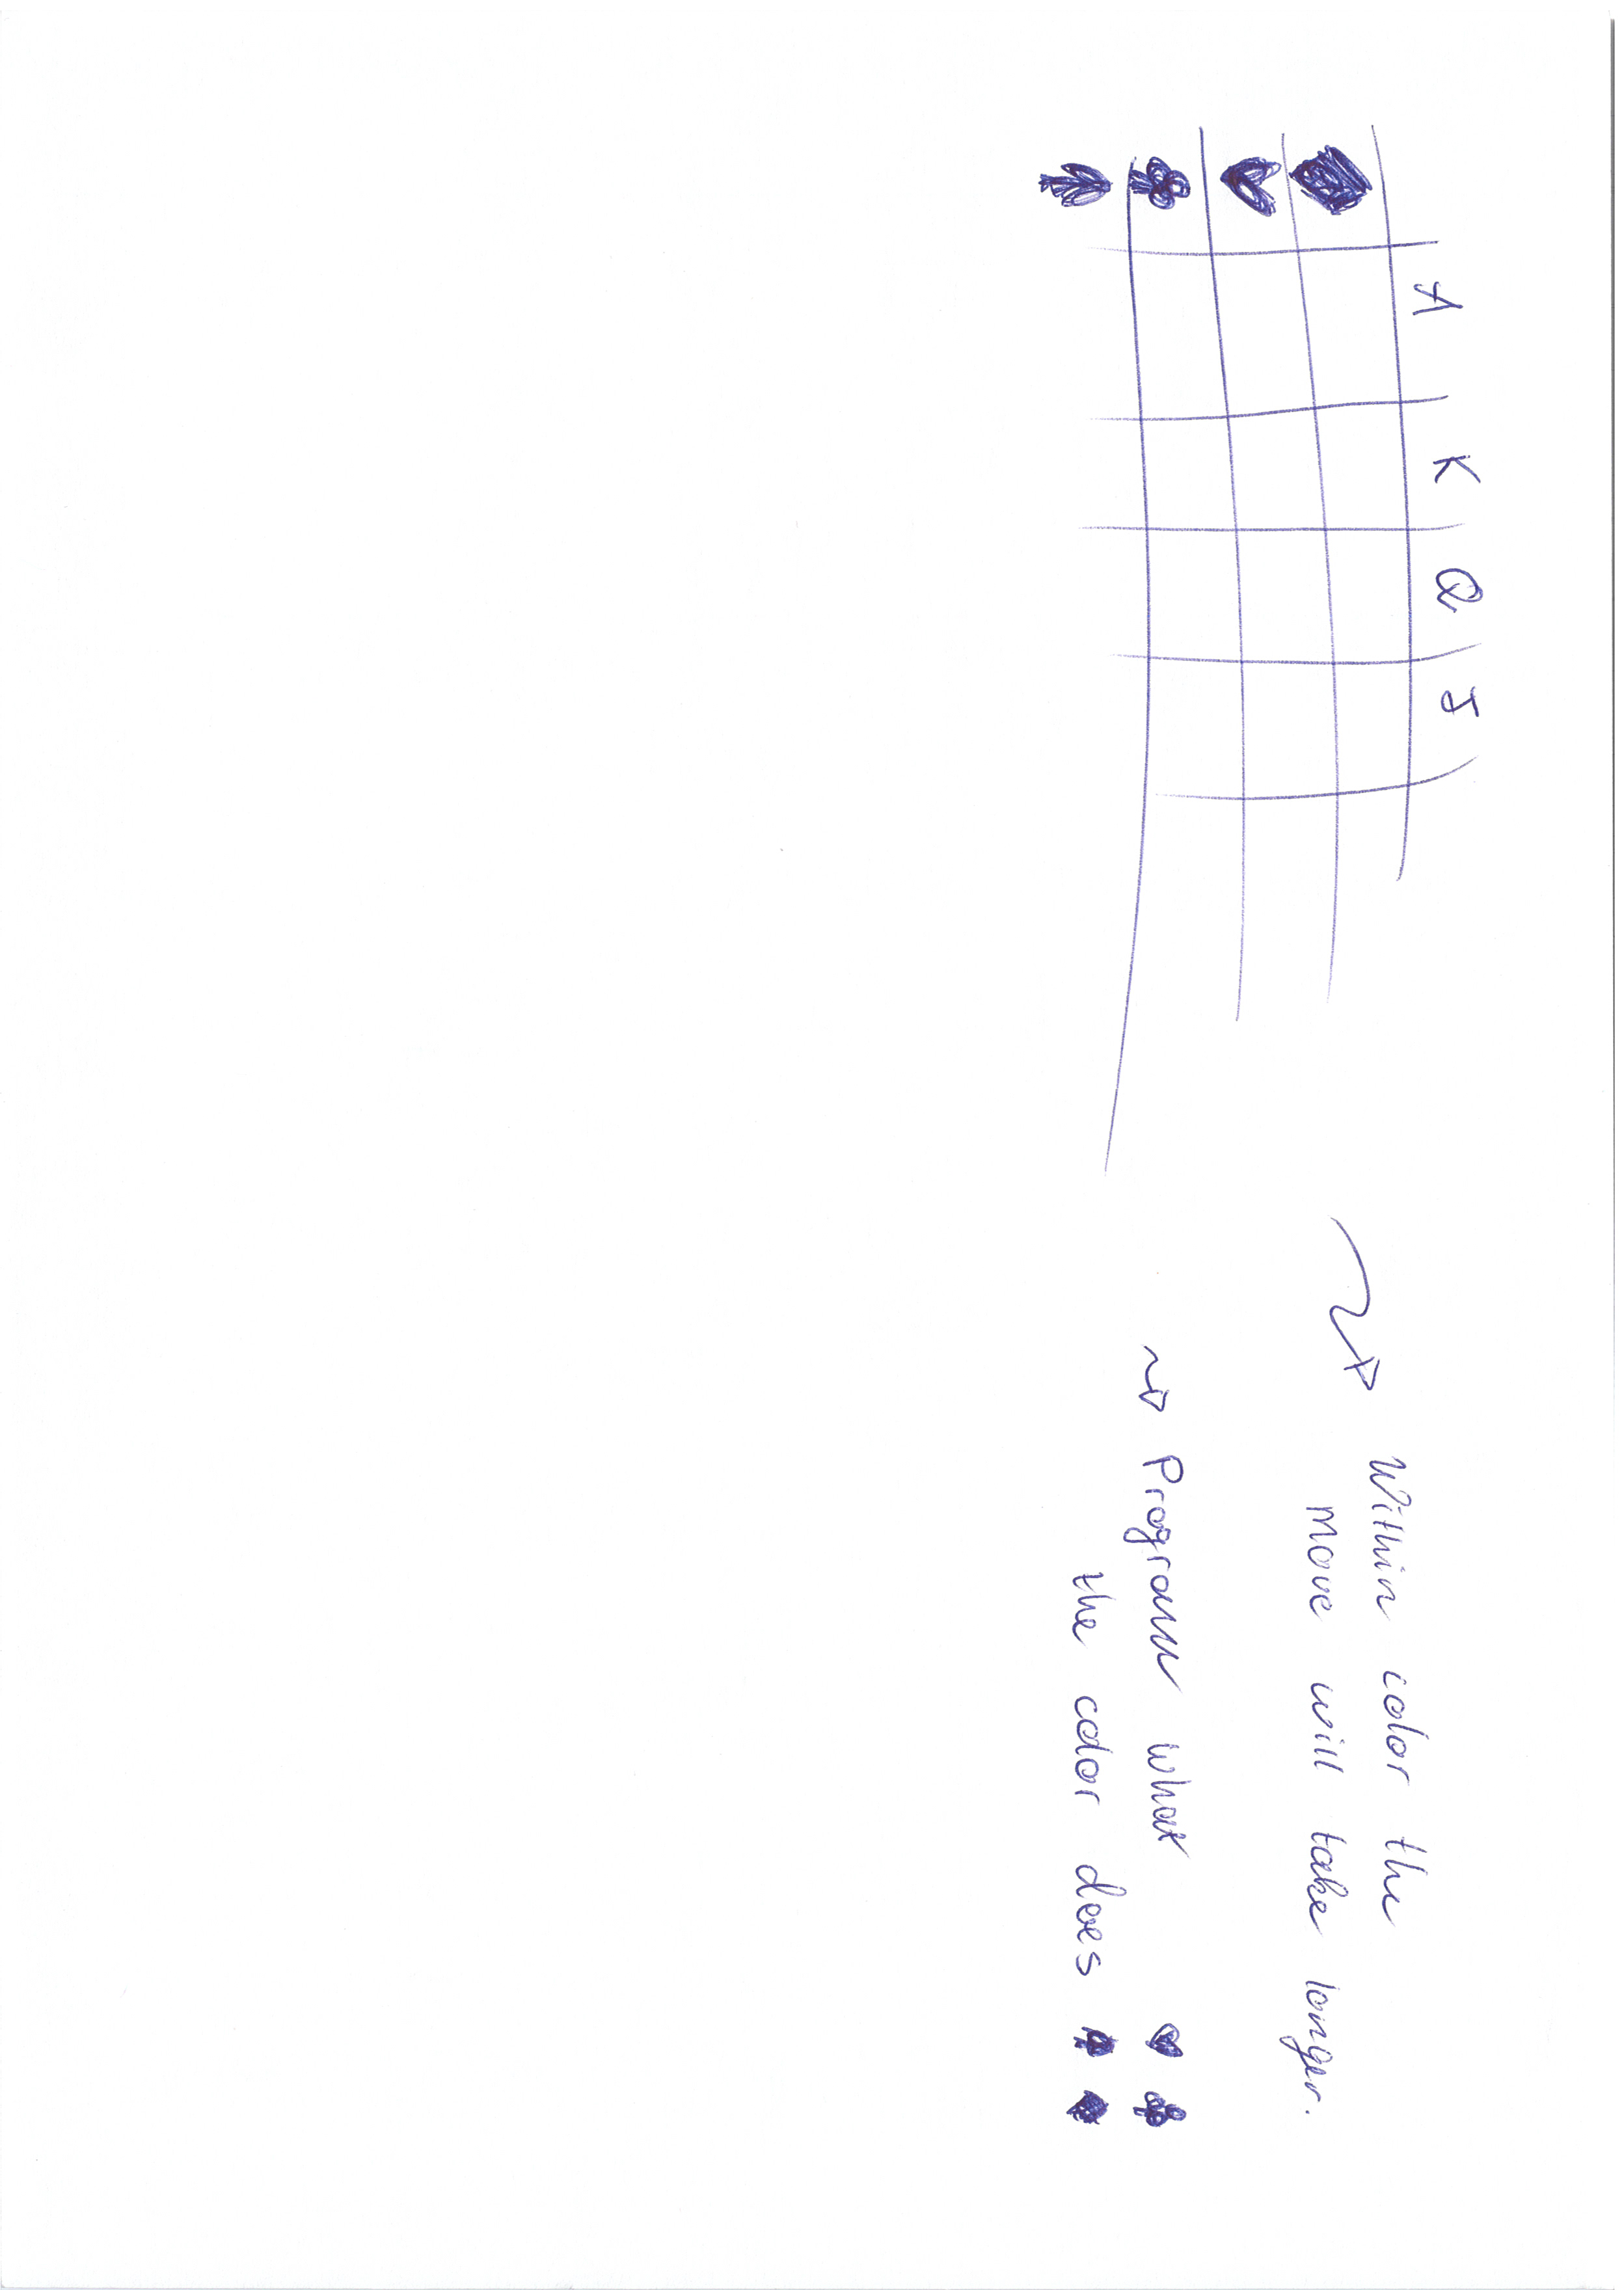 A K Q J
Within color the
move will take longer.
Program what
the color does